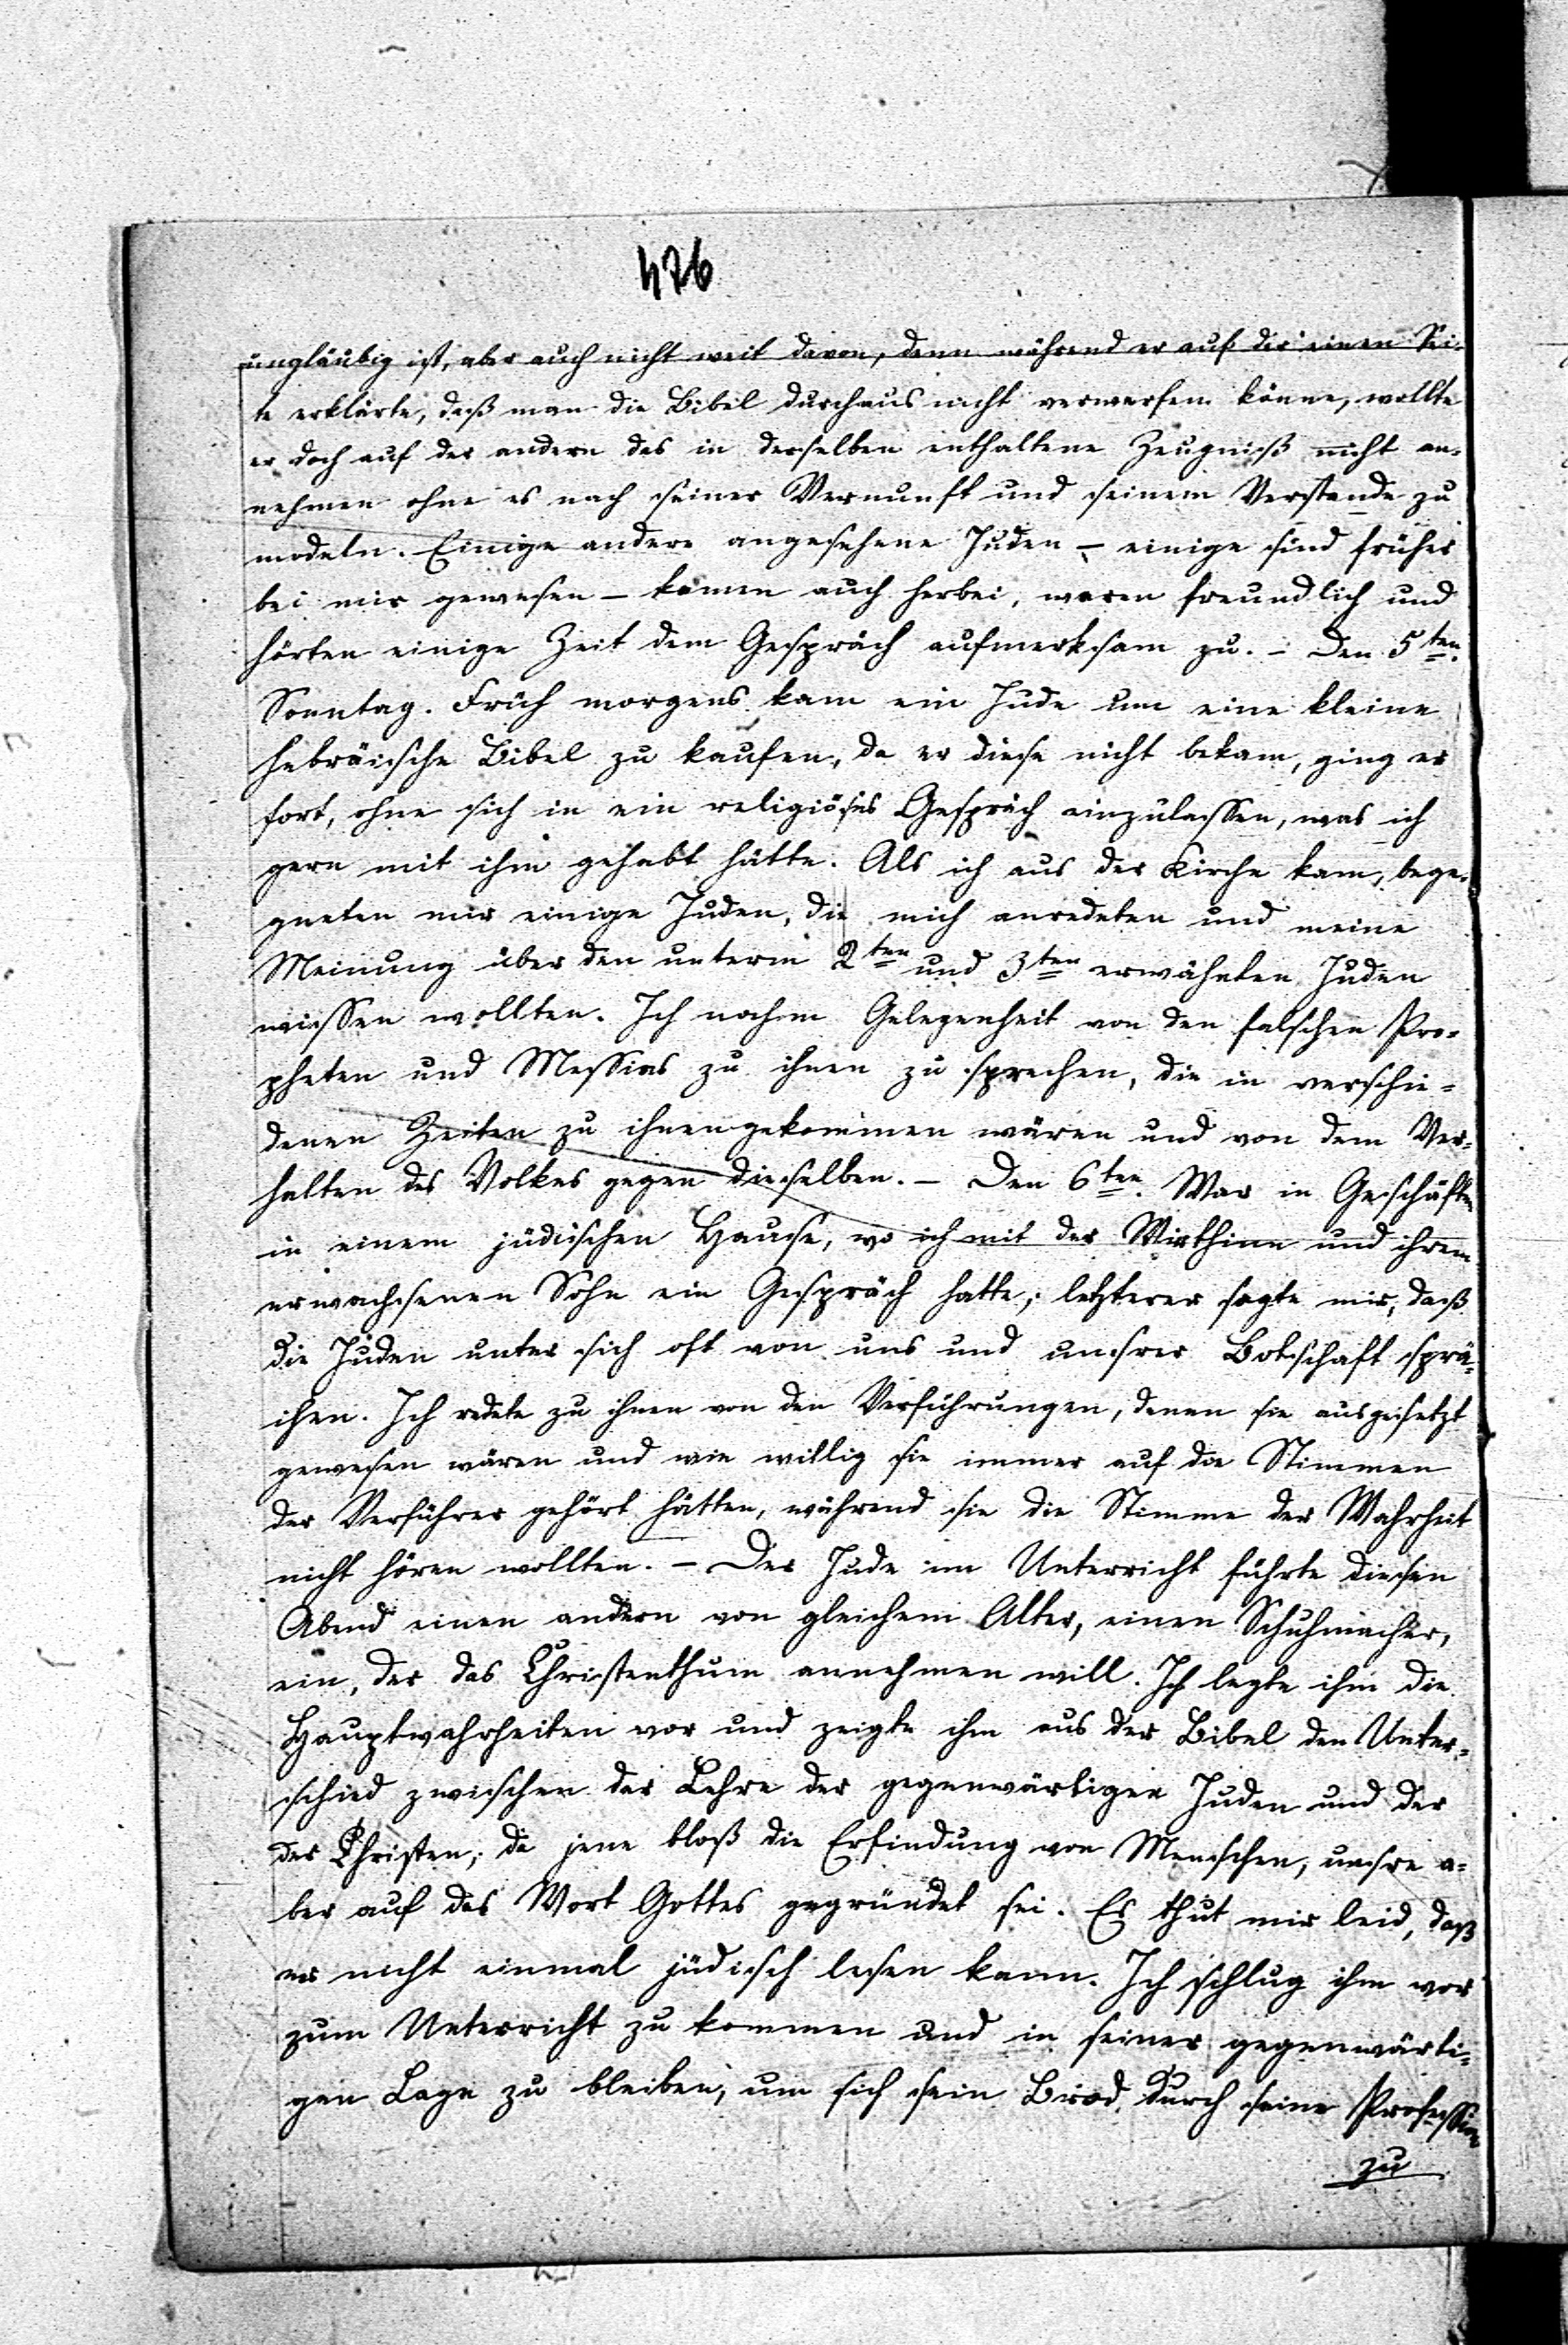 476
ungläubig ist, aber auch nicht weit davon, denn während er auf der einen Sei-
te erklärte, daß man die Bibel durchaus nicht verwerfen könne, wollte
er doch auf der andern das in derselben enthaltene Zeugniß nicht an-
nehmen ohne es nach seiner Vernunft und seinem Verstande zu
modeln. Einige andere angesehene Juden – einige sind früher
bei mir gewesen – kamen auch herbei, waren freundlich und
hörten einige Zeit dem Gespräch aufmerksam zu. – Den 5ten.
Sonntag. Früh morgens kam ein Jude um eine kleine
hebräische Bibel zu kaufen, da er diese nicht bekam, ging er
fort, ohne sich in ein religiöses Gespräch einzulassen, was ich
gern mit ihm gehabt hätte. Als ich aus der Kirche kam, bege-
gneten mir einige Juden, die mich anredeten und meine
Meinung über den unterm 2ten und 3ten erwähnten Juden
wissen wollten. Ich nahm Gelegenheit von den falschen Pro-
pheten und Messias zu ihnen zu sprechen, die in verschie-
denen Zeiten zu ihnen gekommen wären und von dem Ver-
halten des Volkes gegen dieselben. – Den 6ten. War in Geschäften
in einem jüdischen Hause, wo ich mit der Wirthinn und ihrem
erwachsenen Sohn ein Gespräch hatte; letzterer sagte mir, daß
die Juden unter sich oft von uns und unsrer Botschaft sprä-
chen. Ich redete zu ihnen von den Verführungen, denen sie ausgesetzt
gewesen wären und wie willig sie immer auf die Stimmen
der Verführer gehört hätten, während sie die Stimme der Wahrheit
nicht hören wollten. – Der Jude im Unterricht führte diesen
Abend einen andern von gleichem Alter, einen Schuhmacher,
ein, der das Christenthum annehmen will. Ich legte ihm die
Hauptwahrheiten vor und zeigte ihm aus der Bibel den Unter-
schied zwischen der Lehre der gegenwärtigen Juden und der
der Christen, da jene bloß die Erfindung von Menschen, unsre a-
ber auf das Wort Gottes gegründet sei. Es thut mir leid, daß
er nicht einmal jüdisch lesen kann. Ich schlug ihm vor
zum Unterricht zu kommen und in seiner gegenwärti-
gen Lage zu bleiben, um sich sein Brod durch seine Profession
zu